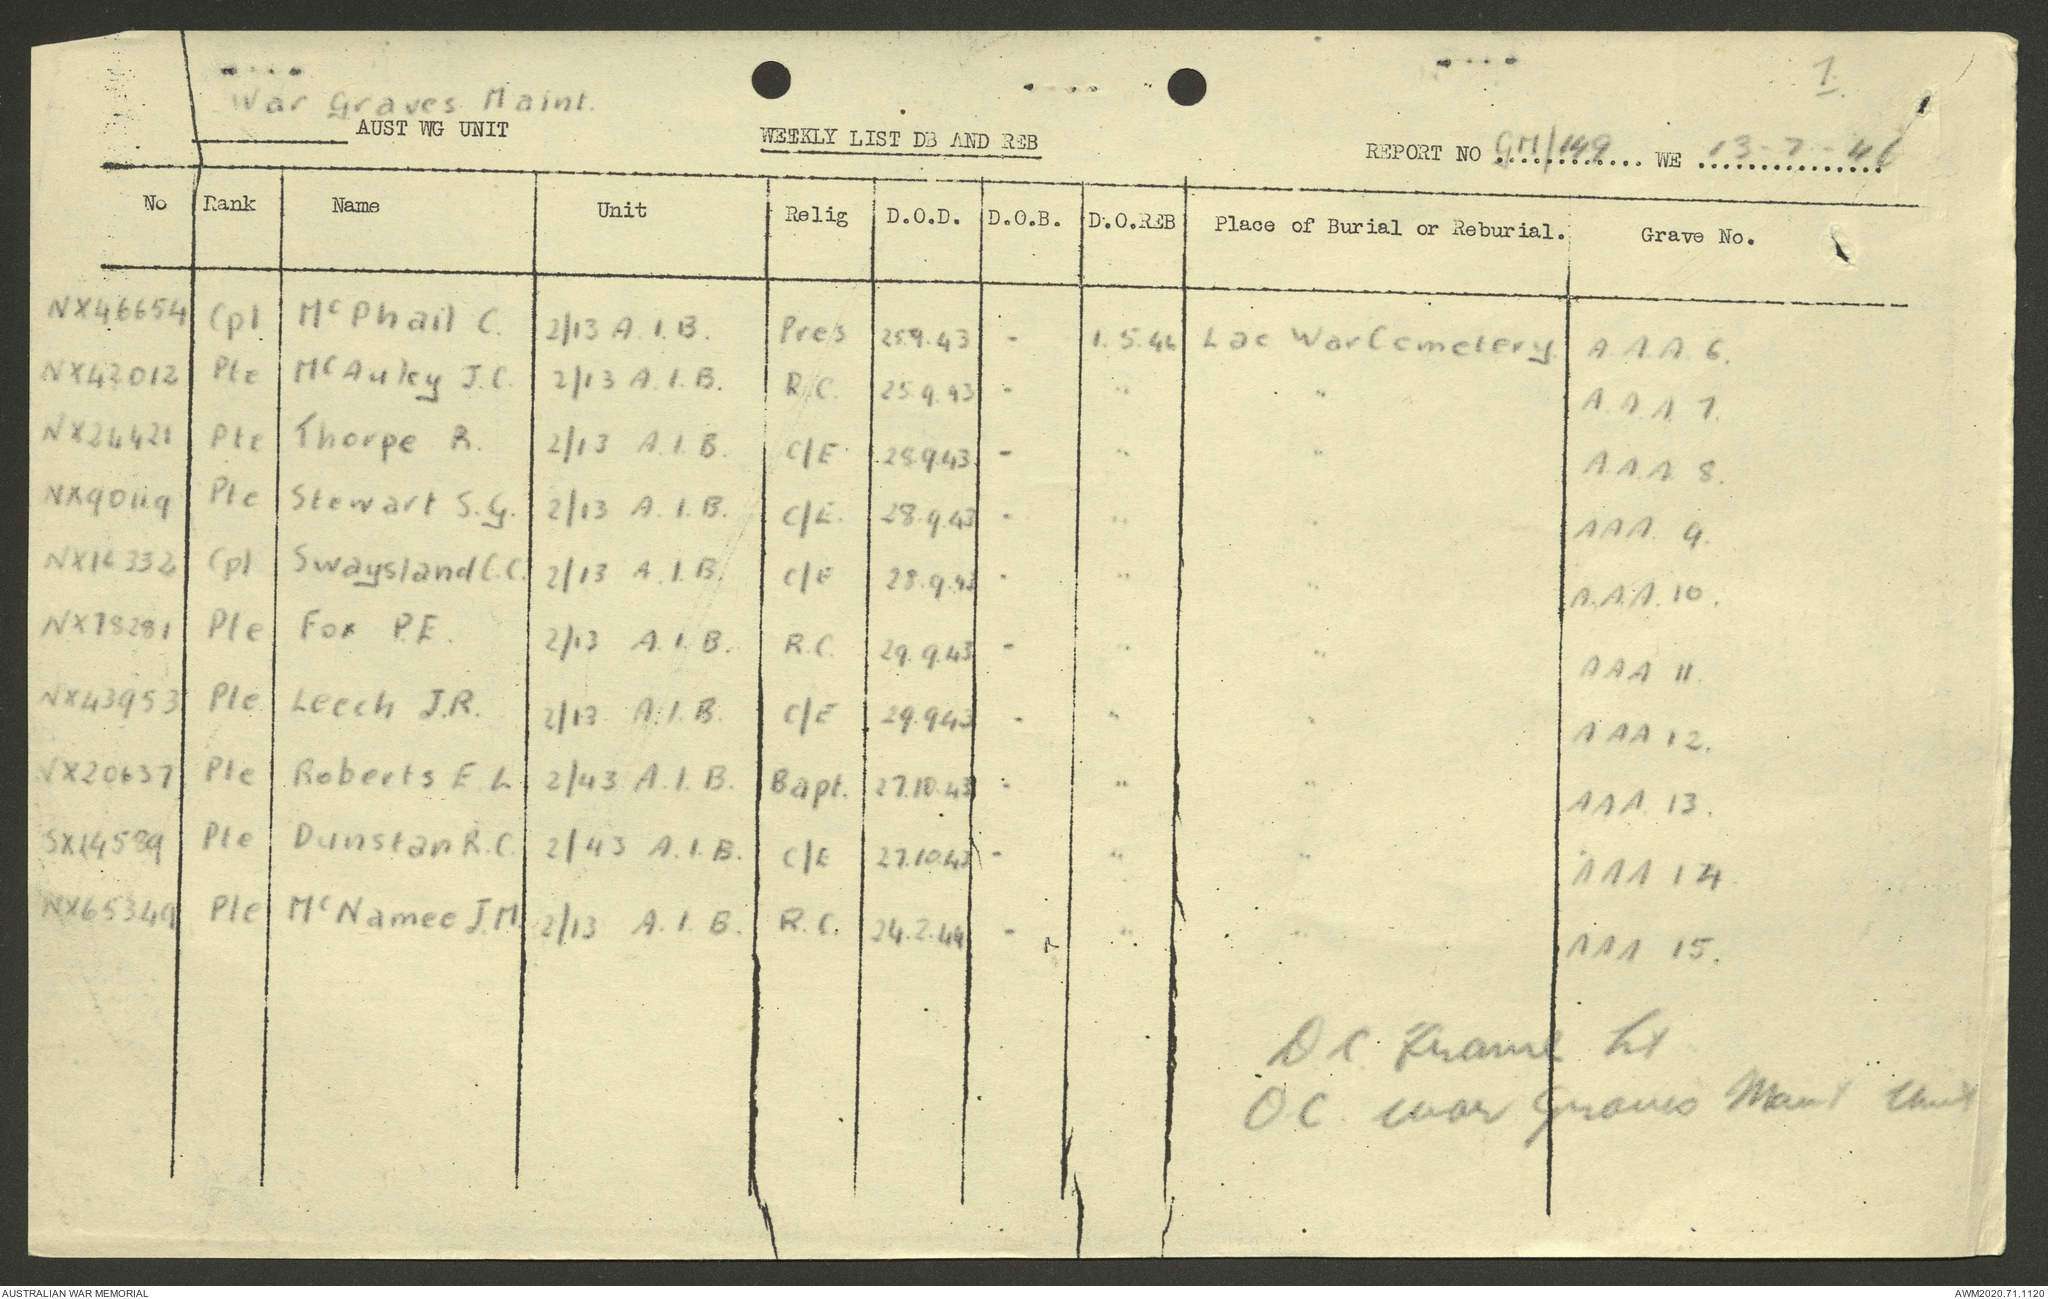 1.
War Graves Maint.
AUST WG UNIT WEEKLY LIST DB AND REB REPORT NO GM/149 WE 13-7-46
No Rank Name Unit Relig D.O.D. D.O.B. D.O.REB Place of Burial or Reburial. Grave No.
NX46654 Cpl McPhail C. 2/13 A.I.B. Pres 25.9.43 - 1.5.46 Lae War Cemetery A.A.A. 6.
NX42012 Pte McAuley J.C. 2/13 A.I.B. R.C. 25.9.43 - " " A.A.A 7.
NX24421 Pte Thorpe R. 2/13 A.I.B. C/E 28.9.43 - " " A.A.A. 8.
NX90119 Pte Stewart S.G. 2/13 A.I.B. C/E. 28.9.43 - " " AAA. 9.
NX14332 Cpl Swaysland C.C. 2/13 A.I.B. C/E 28.9.43 - " " A.A.A. 10.
NX78281 Pte Fox P.E. 2/13 A.I.B. R.C. 29.9.43 - " " AAA 11.
NX43953 Pte Leech J.R. 2/13 A.I.B. C/E 29.9.43 - " " AAA 12.
VX20637 Pte Roberts E.L 2/43 A.I.B. Bapt. 27.10.43 - " " AAA. 13.
SX14589 Pte Dunstan R.C. 2/43 A.I.B. C/E 27.10.43 - " " AAA 14.
NX65349 Pte McNamee J.M. 2/13 A.I.B. R.C. 24.2.44 - " " AAA 15.
D C. Frame Lt
O.C. War Graves Maint Unit
AUSTRALIAN WAR MEMORIAL AWM2020.71.1120